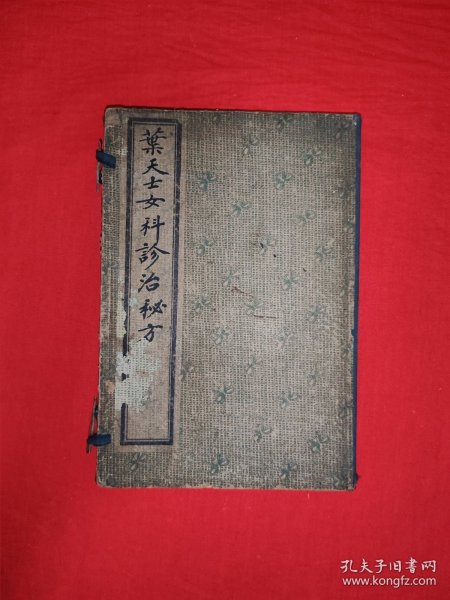 葉天士女科診治秘方
孔夫子旧书网
www.kongfz.com